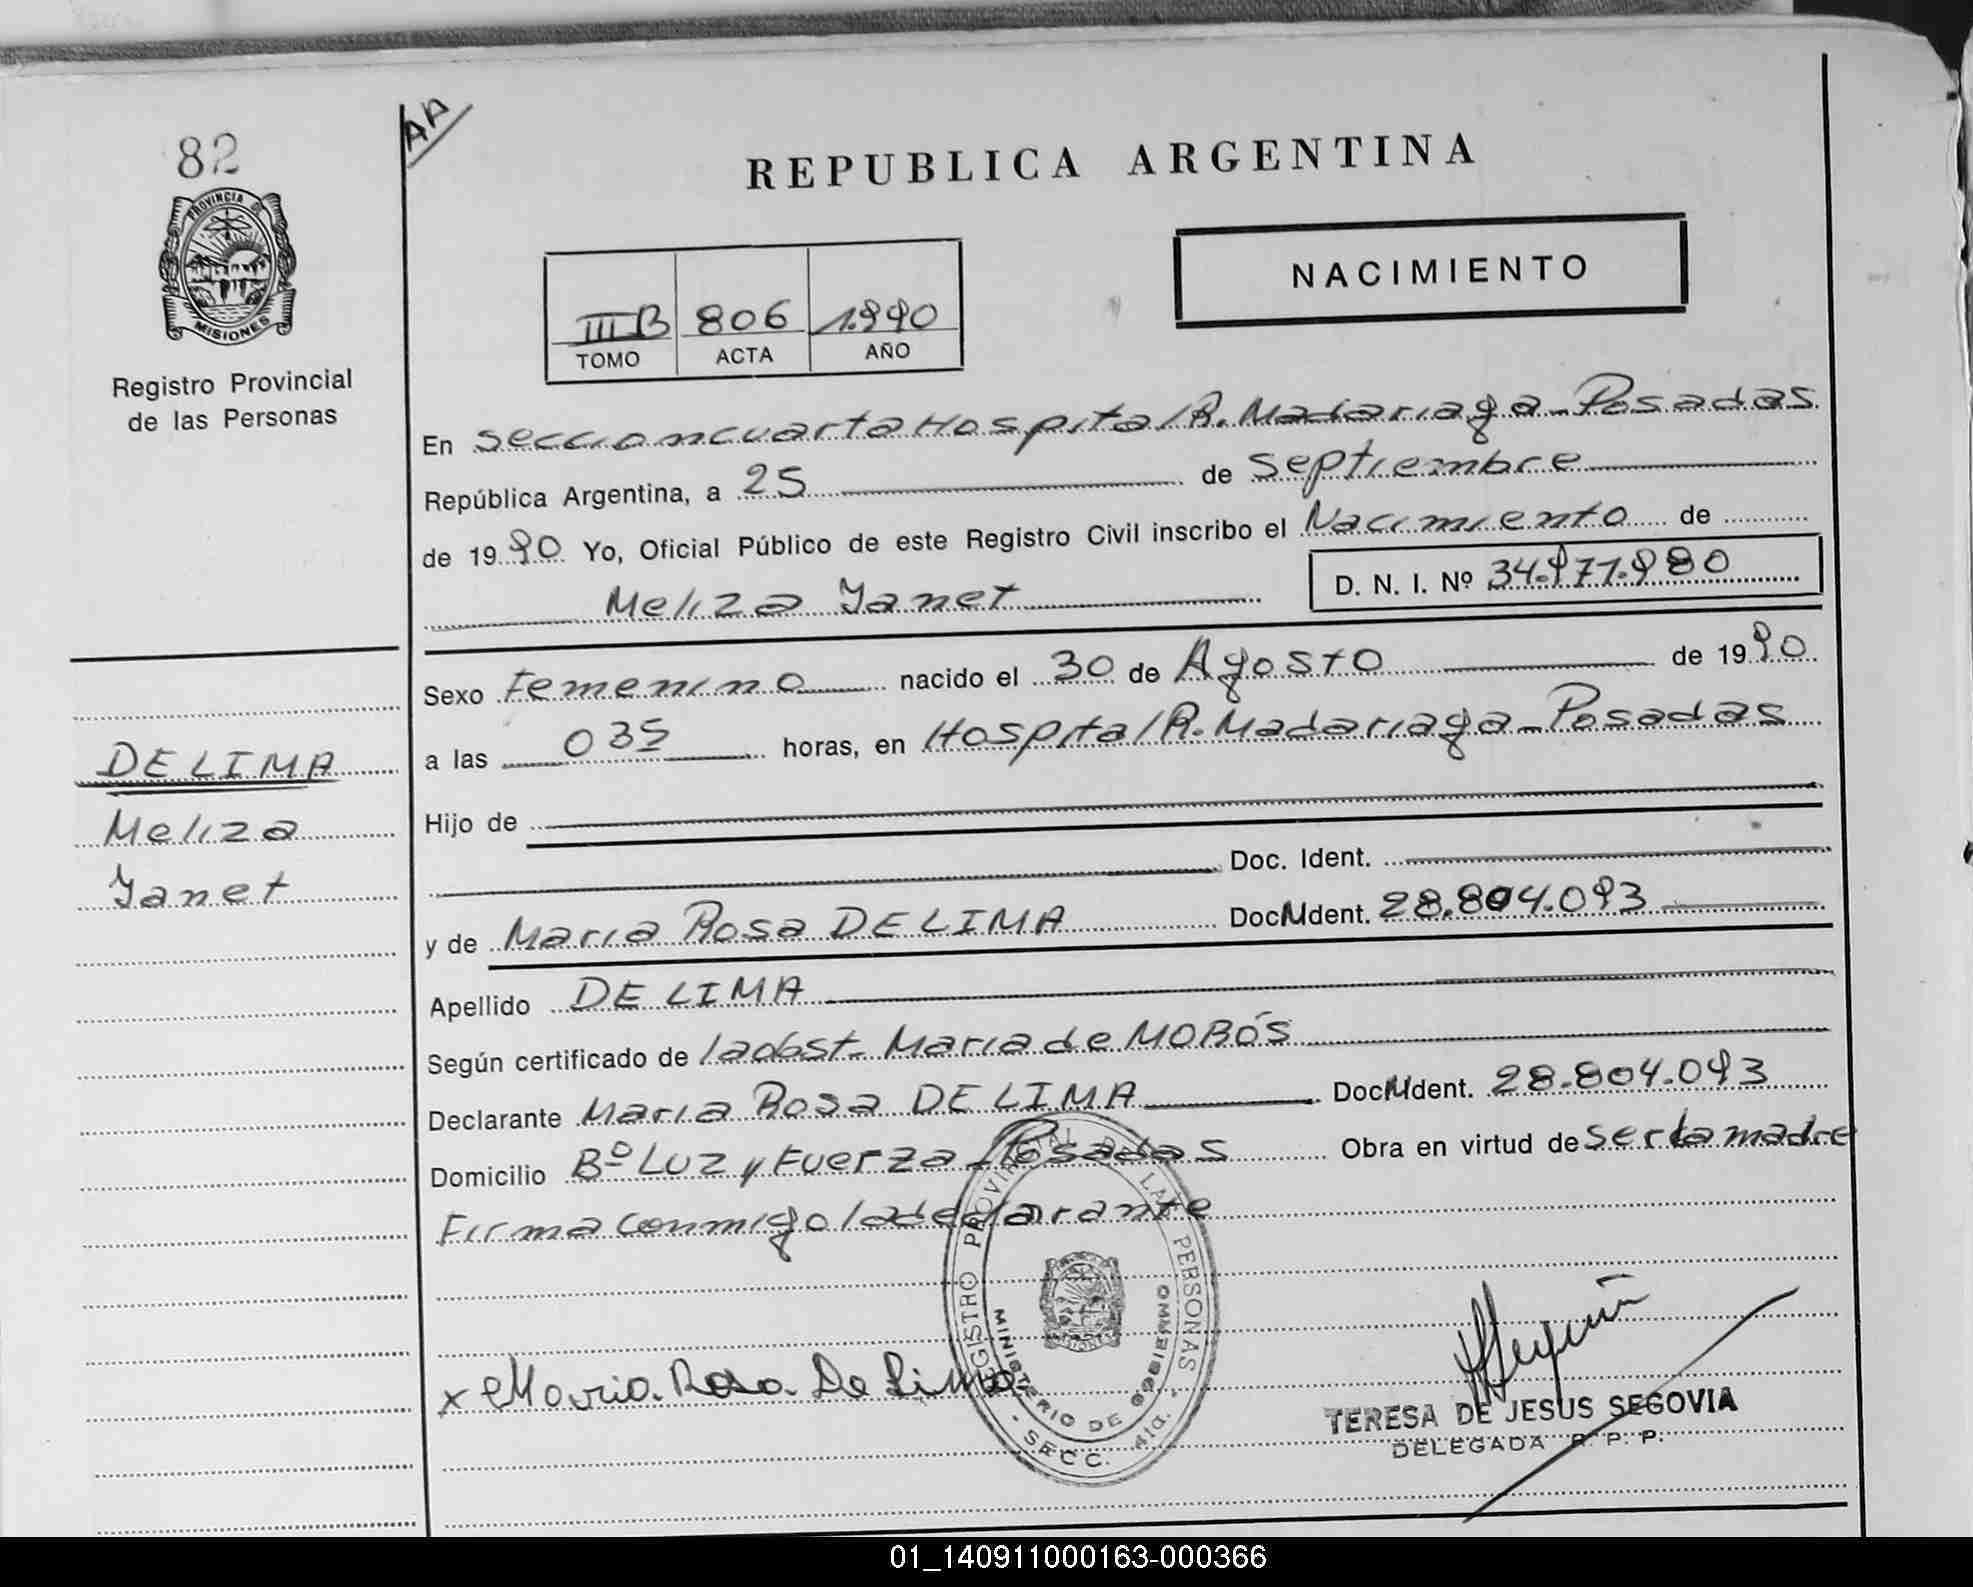 82
AA
PROVINCIA DE
MISIONES
Registro Provincial
de las Personas
REPUBLICA ARGENTINA
NACIMIENTO
III B 806 1.990
TOMO ACTA AÑO
En Seccion cuarta Hospital R. Madariaga - Posadas
República Argentina, a 25 de Septiembre
de 1990 Yo, Oficial Público de este Registro Civil inscribo el Nacimiento de
Meliza Yanet D. N. I. Nº 34.971.980
Sexo Femenino nacido el 30 de Agosto de 1990
a las 035 horas, en Hospital R. Madariaga - Posadas
Hijo de
Doc. Ident.
y de Maria Rosa DE LIMA Doc. Ident. 28.804.093
Apellido DE LIMA
Según certificado de la obst. Maria de MOBÓS
Declarante Maria Rosa DE LIMA Doc. Ident. 28.804.093
Domicilio Bº Luz y Fuerza Posadas Obra en virtud de ser la madre
Firma conmigo la declarante
DE LIMA
Meliza
Yanet
x Maria Rosa De Lima
REGISTRO PROVINCIAL DE LAS PERSONAS
MINISTERIO DE GOBIERNO
SECC.
TERESA DE JESUS SEGOVIA
DELEGADA R. P. P.
01_140911000163-000366